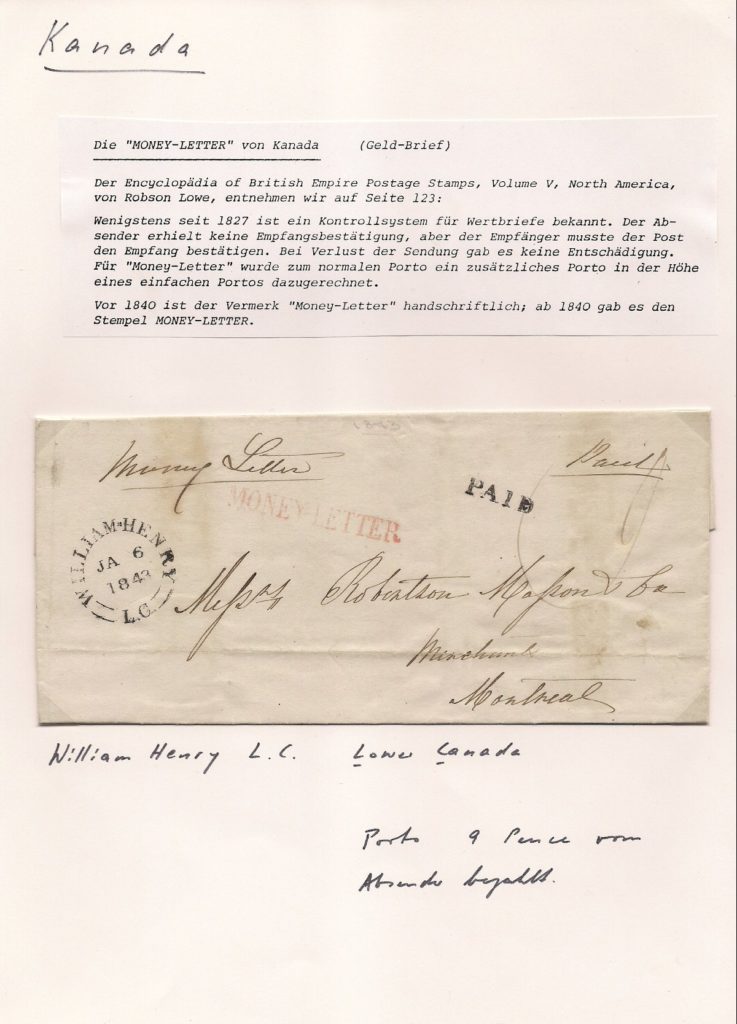 Kanada
Die "MONEY-LETTER" von Kanada (Geld-Brief)
Der Encyclopädia of British Empire Postage Stamps, Volume V, North America,
von Robson Lowe, entnehmen wir auf Seite 123:
Wenigstens seit 1827 ist ein Kontrollsystem für Wertbriefe bekannt. Der Ab-
sender erhielt keine Empfangsbestätigung, aber der Empfänger musste der Post
den Empfang bestätigen. Bei Verlust der Sendung gab es keine Entschädigung.
Für "Money-Letter" wurde zum normalen Porto ein zusätzliches Porto in der Höhe
eines einfachen Portos dazugerechnet.
Vor 1840 ist der Vermerk "Money-Letter" handschriftlich; ab 1840 gab es den
Stempel MONEY-LETTER.
1843
Money Letter
Paid
9
MONEY-LETTER
PAID
WILLIAM-HENRY
JA 6
1843
L.C.
Messrs Robertson Masson & Co
Merchants
Montreal
William Henry L.C. Lower Canada
Porto 9 Pence vom
Absender bezahlt.